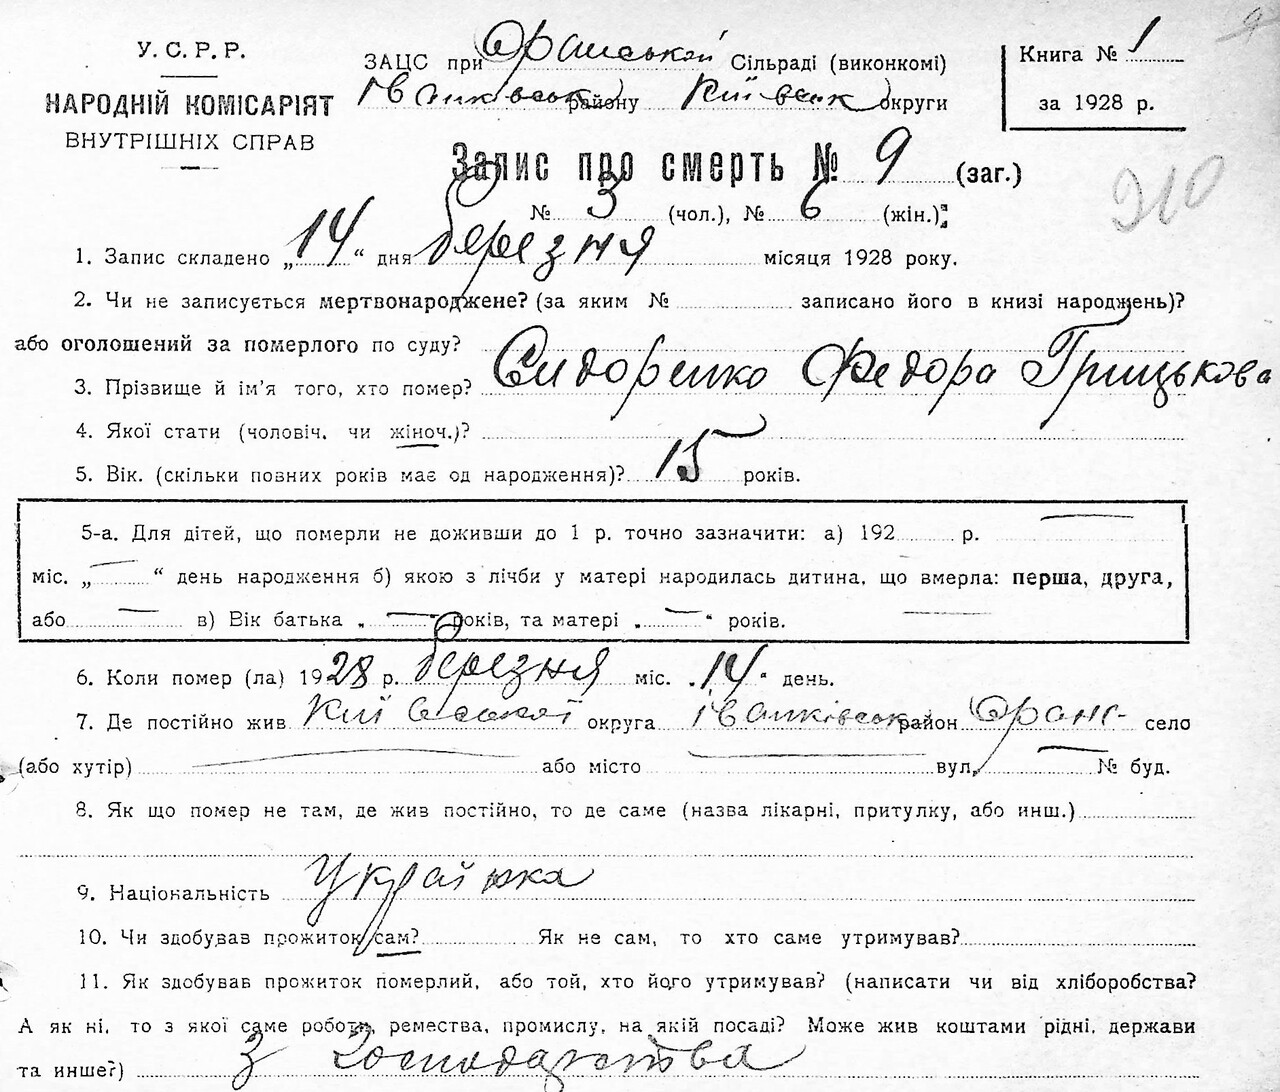 У. С. Р. Р.
НАРОДНІЙ КОМІСАРІЯТ
ВНУТРІШНІХ СПРАВ
ЗАЦС при Оранській Сільраді (виконкомі)
Іванківськ району Київськ округи
Книга № 1
за 1928 р.
Запис про смерть № 9 (заг.)
№ 3 (чол.), № 6 (жін.):
910
1. Запис складено „14“ дня березня місяця 1928 року.
2. Чи не записується мертвонароджене? (за яким № записано його в книзі народжень)?
або оголошений за померлого по суду?
3. Прізвище й ім’я того, хто помер? Сидоренко Федора Грицькова
4. Якої стати (чоловіч. чи жіноч.)?
5. Вік. (скільки повних років має од народження)? 15 років.
5-а. Для дітей, що померли не доживши до 1 р. точно зазначити: а) 192 р.
міс. „ “ день народження б) якою з лічби у матері народилась дитина, що вмерла: перша, друга,
або в) Вік батька „ “ років, та матері „ “ років.
6. Коли помер (ла) 1928 р. березня міс. „14“ день.
7. Де постійно жив Київської округа Іванківськ район Оранс- село
(або хутір) або місто вул. № буд.
8. Як що помер не там, де жив постійно, то де саме (назва лікарні, притулку, або инш.)
9. Національність Українка
10. Чи здобував прожиток сам? Як не сам, то хто саме утримував?
11. Як здобував прожиток померлий, або той, хто його утримував? (написати чи від хліборобства?
А як ні, то з якої саме роботи, ремества, промислу, на якій посаді? Може жив коштами рідні, держави
та инше?) З господарства